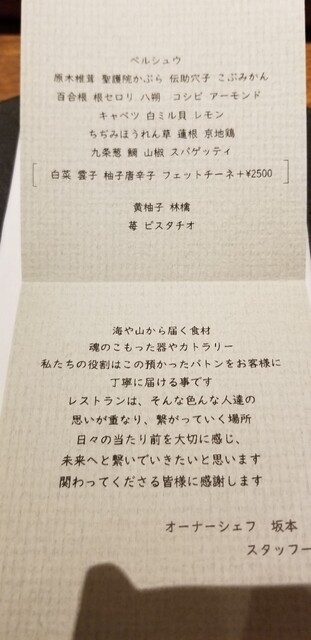 ペルシュウ
原木椎茸 聖護院かぶら 伝助穴子 こぶみかん
百合根 根セロリ 八朔 コシピ アーモンド
キャベツ 白ミル貝 レモン
ちぢみほうれん草 蓮根 京地鶏
九条葱 鯛 山椒 スパゲッティ
[ 白菜 雲子 柚子唐辛子 フェットチーネ+¥2500 ]
黄柚子 林檎
苺 ピスタチオ
海や山から届く食材
魂のこもった器やカトラリー
私たちの役割はこの預かったバトンをお客様に
丁寧に届ける事です
レストランは、そんな色んな人達の
思いが重なり、繋がっていく場所
日々の当たり前を大切に感じ、
未来へと繋いでいきたいと思います
関わってくださる皆様に感謝します
オーナーシェフ 坂本
スタッフ一